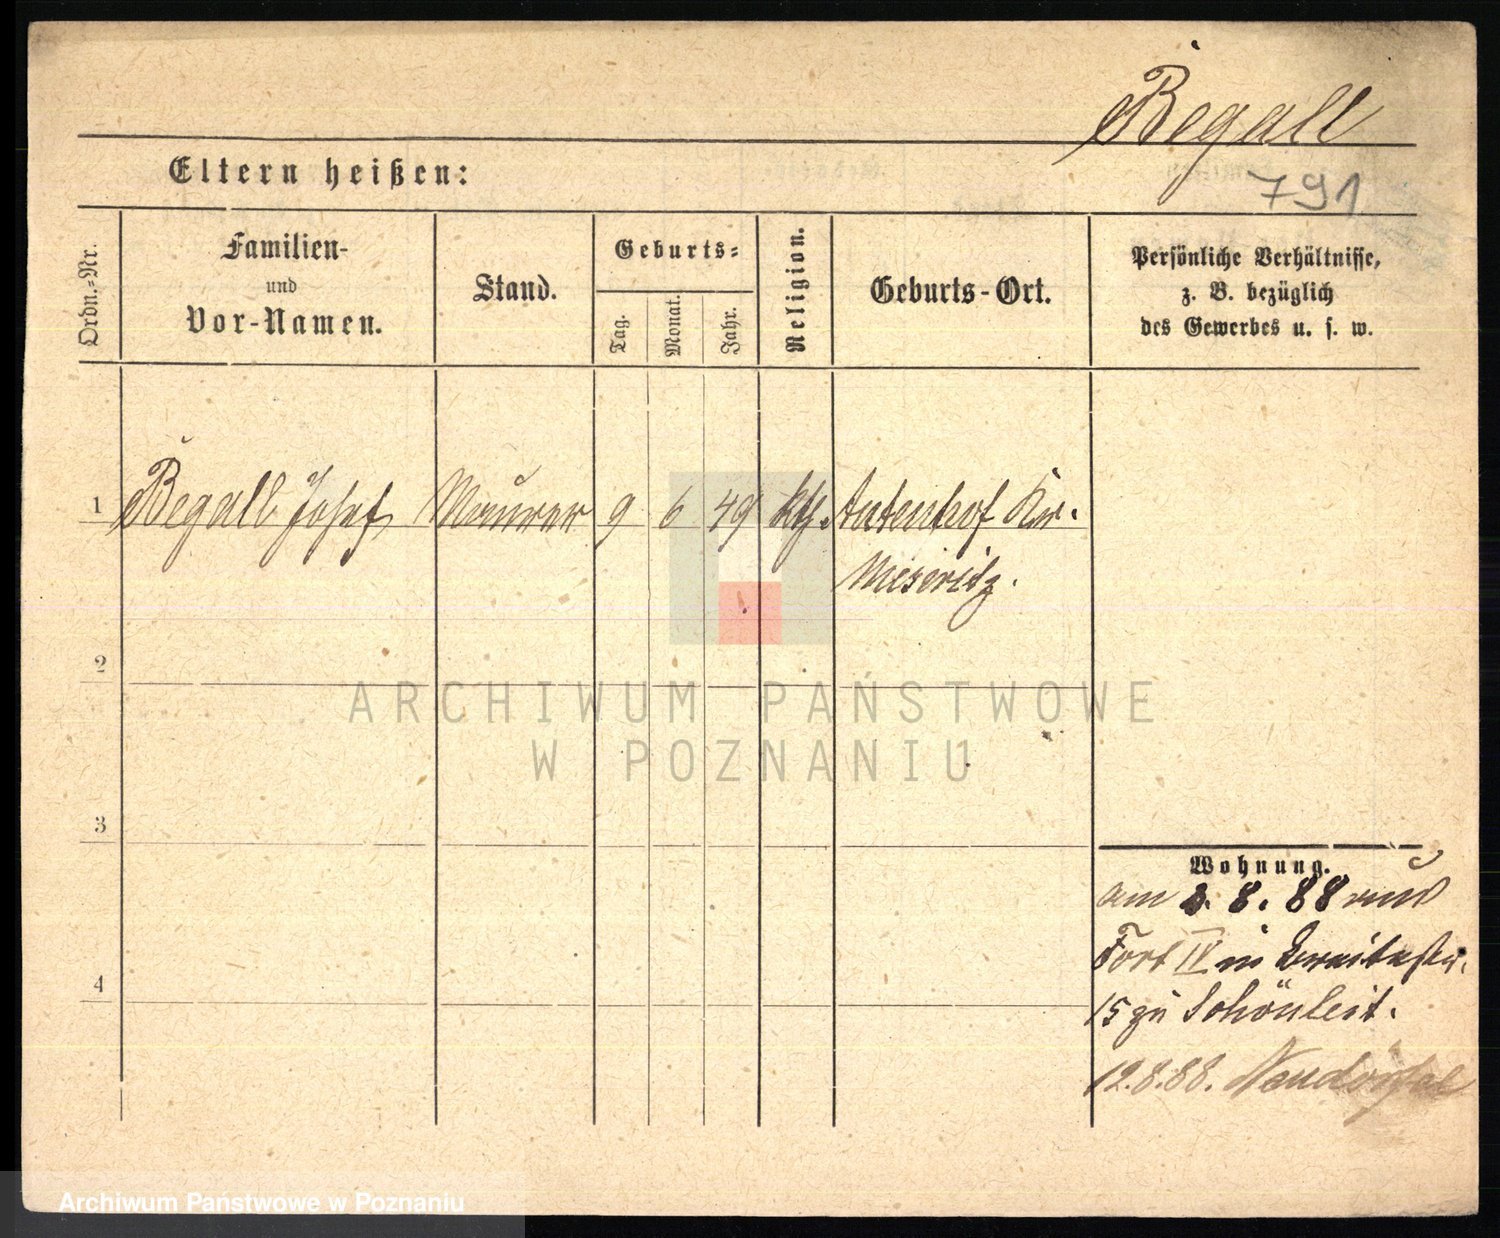 Begall
791
Eltern heißen:
Ordn.-Nr.
Familien-
und
Vor-Namen.
Stand.
Geburts-
Tag.
Monat.
Jahr.
Religion.
Geburts-Ort.
Persönliche Verhältnisse,
z. B. bezüglich
des Gewerbes u. s. w.
1 Begall Josef Maurer 9 6 49 kth. Autenhof Kr.
Meseritz.
2
3
4
Wohnung.
am 8. 88 aus
Fort IV in Breitestr.
15 zu Schönleit.
12.8.88. Naudorfal
ARCHIWUM PAŃSTWOWE
W POZNANIU
Archiwum Państwowe w Poznaniu